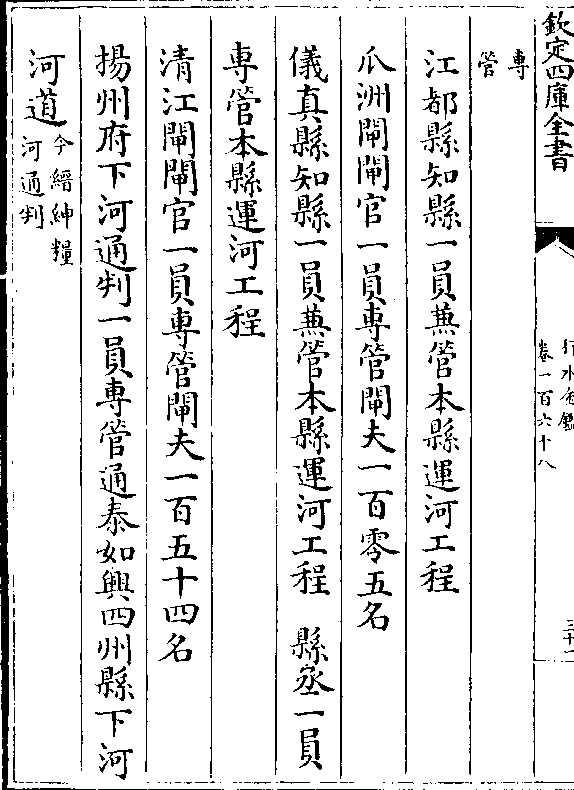 欽定四庫全書
行水金鑑
卷一百六十八
專
管
江都縣知縣一員兼管本縣運河工程
瓜洲閘閘官一員專管閘夫一百零五名
儀真縣知縣一員兼管本縣運河工程　縣丞一員
專管本縣運河工程
清江閘閘官一員專管閘夫一百五十四名
揚州府下河通判一員專管通泰如興四州縣下河
河道今縉紳糧
河通判